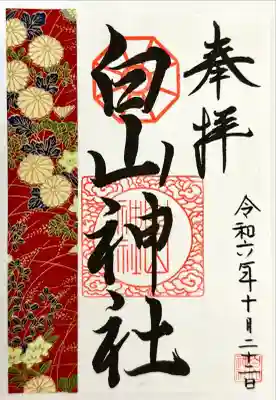 奉拝
白山神社
令和六年十月二十二日